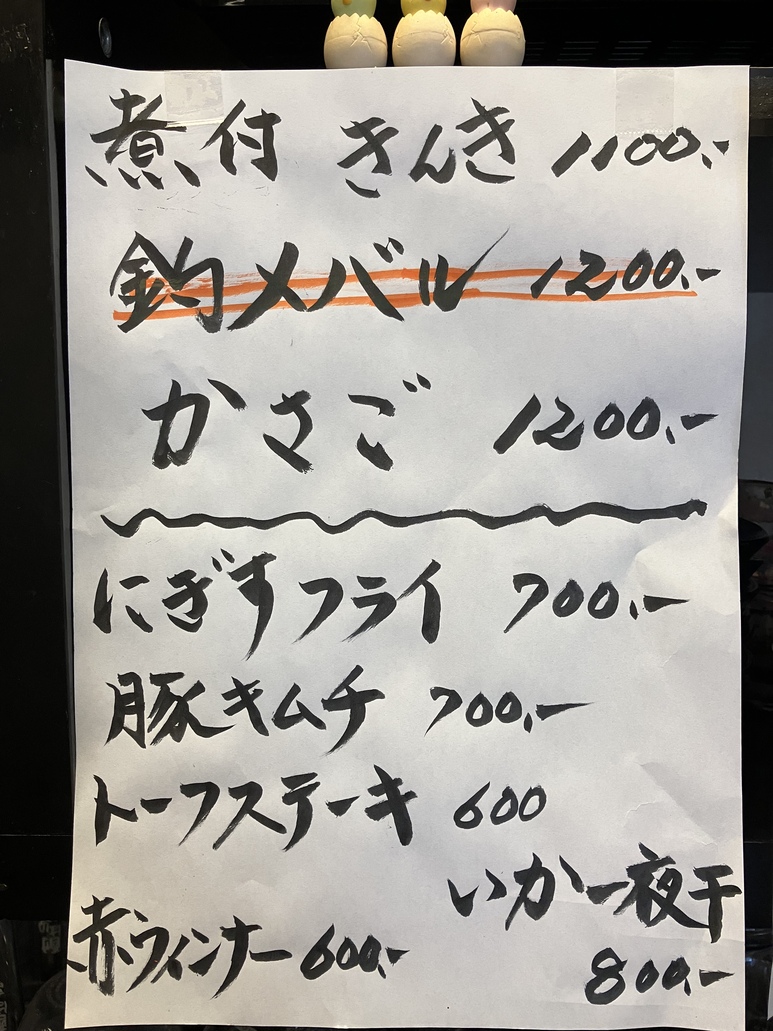 煮付 きんき 1100.-
釣メバル 1200.-
かさご 1200.-
にぎすフライ 700.-
豚キムチ 700.-
トーフステーキ 600
いか一夜干
800.-
赤ウィンナー 600.-